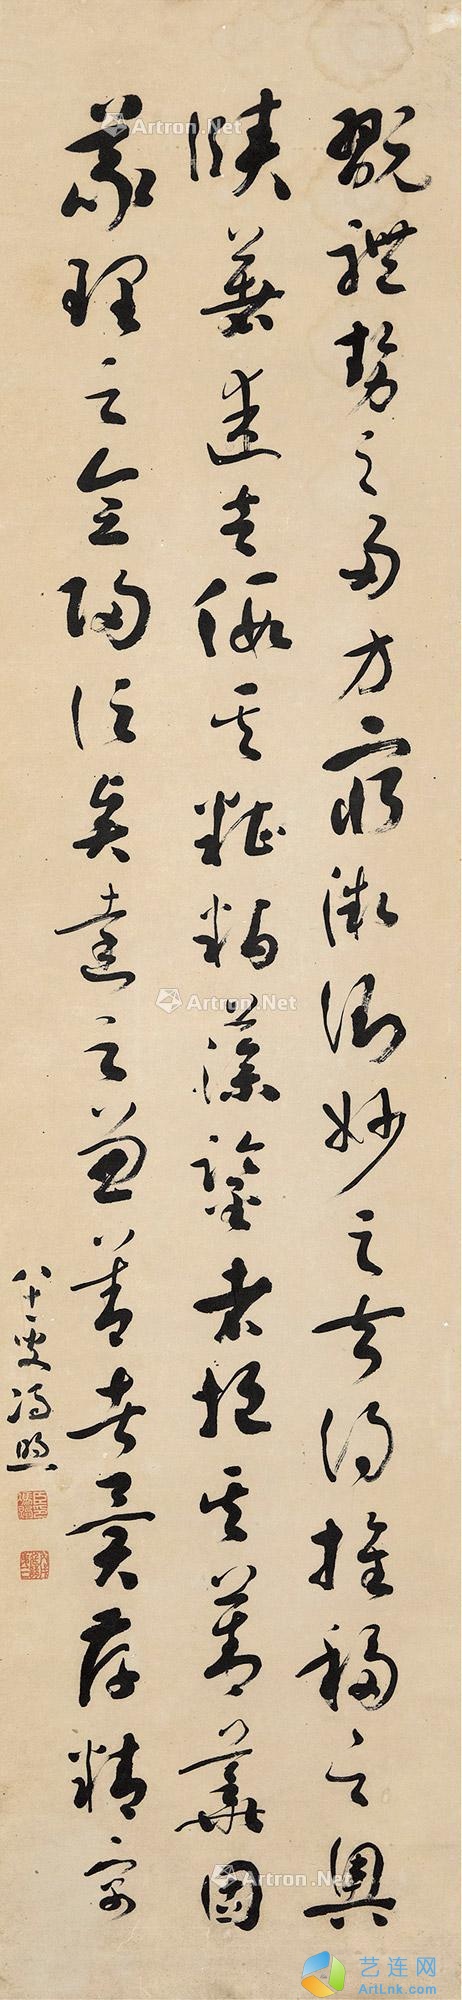 翫體勢之多方窮微測妙之夫得推移之奧
賾著述者假其糟粕藻鑒者挹其菁華固
義理之會歸信賢達之兼善者矣存精寓
八十一叟馮煦
Artron.Net
Artron.Net
Artron.Net
Artron.Net
Artron.Net
Artron.Net
艺连网
ArtLnk.com